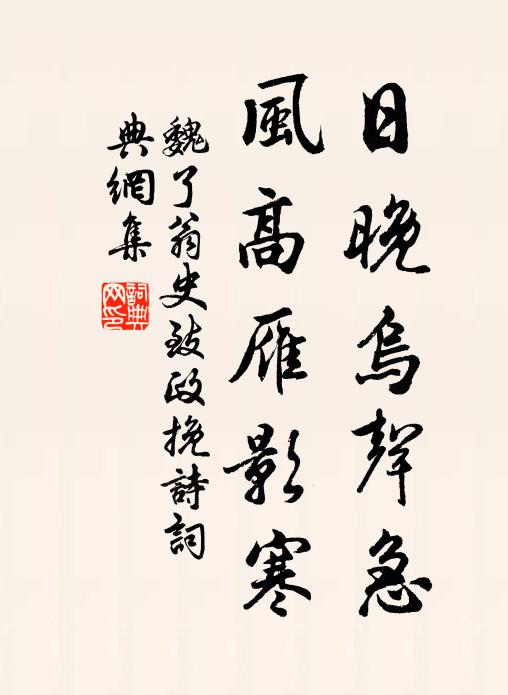 日晚烏聲急
風高雁影寒
魏了翁史致政挽詩詞
典網集
詞典
网印